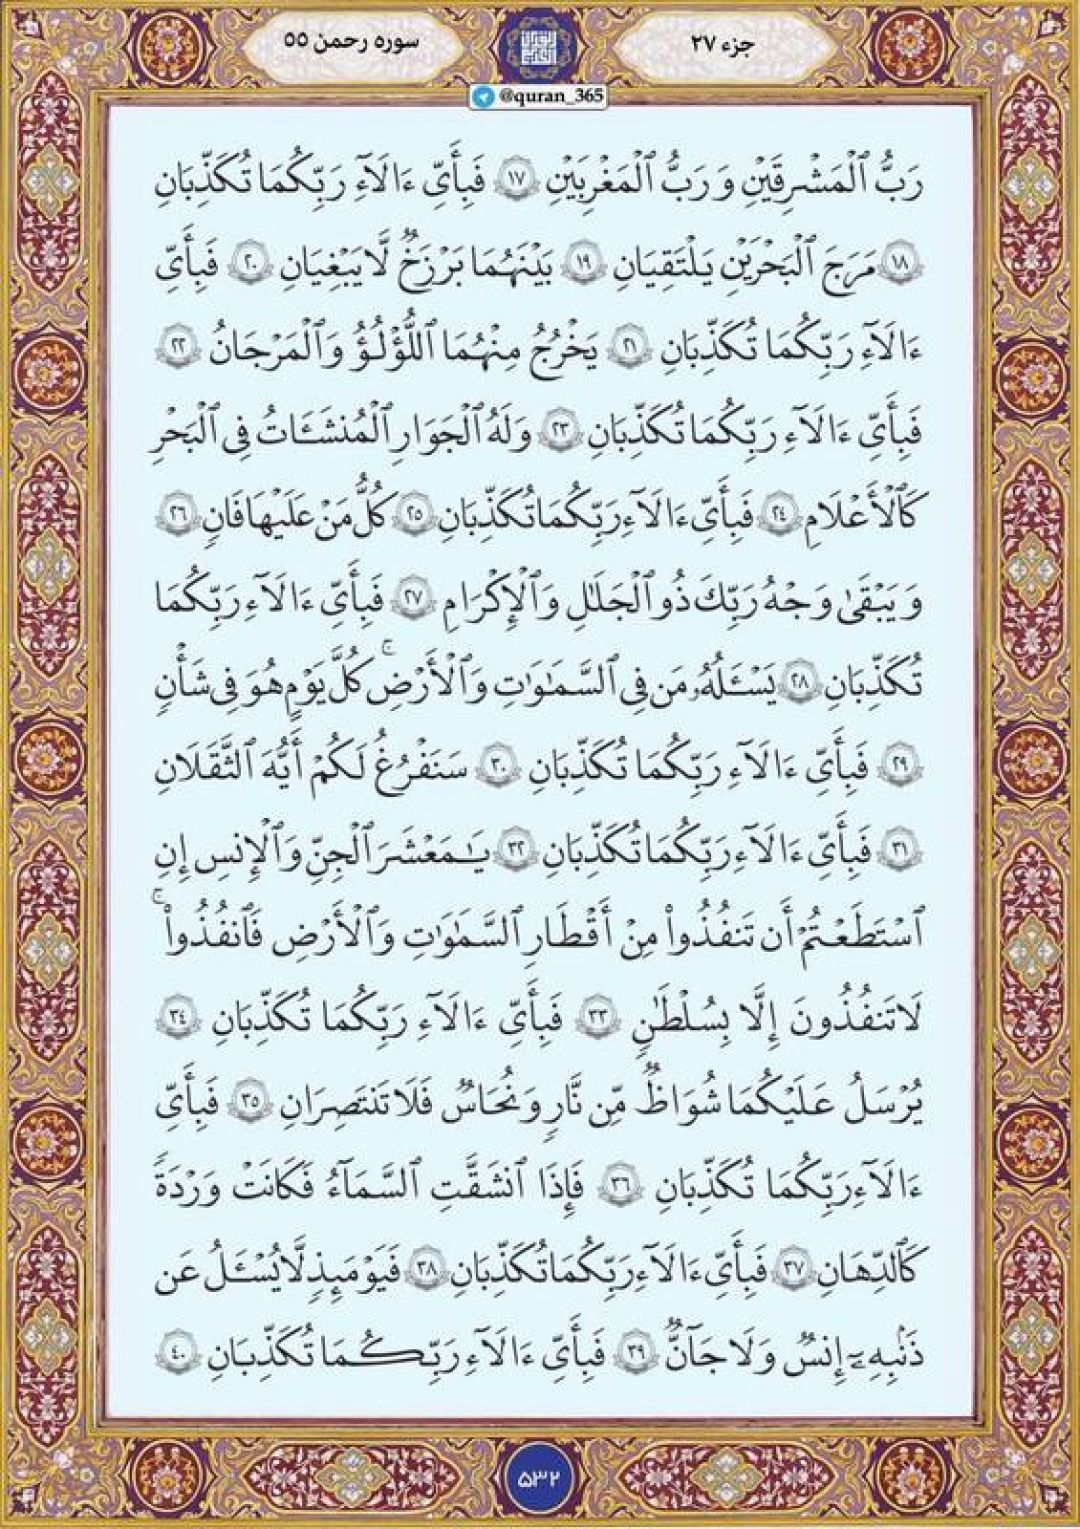 جزء ۲۷
سوره رحمن ۵۵
@quran_365
رَبُّ ٱلْمَشْرِقَيْنِ وَرَبُّ ٱلْمَغْرِبَيْنِ ۱۷ فَبِأَىِّ ءَالَآءِ رَبِّكُمَا تُكَذِّبَانِ
۱۸ مَرَجَ ٱلْبَحْرَيْنِ يَلْتَقِيَانِ ۱۹ بَيْنَهُمَا بَرْزَخٌ لَّا يَبْغِيَانِ ۲۰ فَبِأَىِّ
ءَالَآءِ رَبِّكُمَا تُكَذِّبَانِ ۲۱ يَخْرُجُ مِنْهُمَا ٱللُّؤْلُؤُ وَٱلْمَرْجَانُ ۲۲
فَبِأَىِّ ءَالَآءِ رَبِّكُمَا تُكَذِّبَانِ ۲۳ وَلَهُ ٱلْجَوَارِ ٱلْمُنشَـَٔاتُ فِى ٱلْبَحْرِ
كَٱلْأَعْلَامِ ۲۴ فَبِأَىِّ ءَالَآءِ رَبِّكُمَا تُكَذِّبَانِ ۲۵ كُلُّ مَنْ عَلَيْهَا فَانٍ ۲۶
وَيَبْقَىٰ وَجْهُ رَبِّكَ ذُو ٱلْجَلَـٰلِ وَٱلْإِكْرَامِ ۲۷ فَبِأَىِّ ءَالَآءِ رَبِّكُمَا
تُكَذِّبَانِ ۲۸ يَسْـَٔلُهُۥ مَن فِى ٱلسَّمَـٰوَٰتِ وَٱلْأَرْضِ ۚ كُلَّ يَوْمٍ هُوَ فِى شَأْنٍ
۲۹ فَبِأَىِّ ءَالَآءِ رَبِّكُمَا تُكَذِّبَانِ ۳۰ سَنَفْرُغُ لَكُمْ أَيُّهَ ٱلثَّقَلَانِ
۳۱ فَبِأَىِّ ءَالَآءِ رَبِّكُمَا تُكَذِّبَانِ ۳۲ يَـٰمَعْشَرَ ٱلْجِنِّ وَٱلْإِنسِ إِنِ
ٱسْتَطَعْتُمْ أَن تَنفُذُوا۟ مِنْ أَقْطَارِ ٱلسَّمَـٰوَٰتِ وَٱلْأَرْضِ فَٱنفُذُوا۟ ۚ
لَا تَنفُذُونَ إِلَّا بِسُلْطَـٰنٍ ۳۳ فَبِأَىِّ ءَالَآءِ رَبِّكُمَا تُكَذِّبَانِ ۳۴
يُرْسَلُ عَلَيْكُمَا شُوَاظٌ مِّن نَّارٍ وَنُحَاسٌ فَلَا تَنتَصِرَانِ ۳۵ فَبِأَىِّ
ءَالَآءِ رَبِّكُمَا تُكَذِّبَانِ ۳۶ فَإِذَا ٱنشَقَّتِ ٱلسَّمَآءُ فَكَانَتْ وَرْدَةً
كَٱلدِّهَانِ ۳۷ فَبِأَىِّ ءَالَآءِ رَبِّكُمَا تُكَذِّبَانِ ۳۸ فَيَوْمَئِذٍ لَّا يُسْـَٔلُ عَن
ذَنۢبِهِۦٓ إِنسٌ وَلَا جَآنٌّ ۳۹ فَبِأَىِّ ءَالَآءِ رَبِّكُمَا تُكَذِّبَانِ ۴۰
۵۳۲